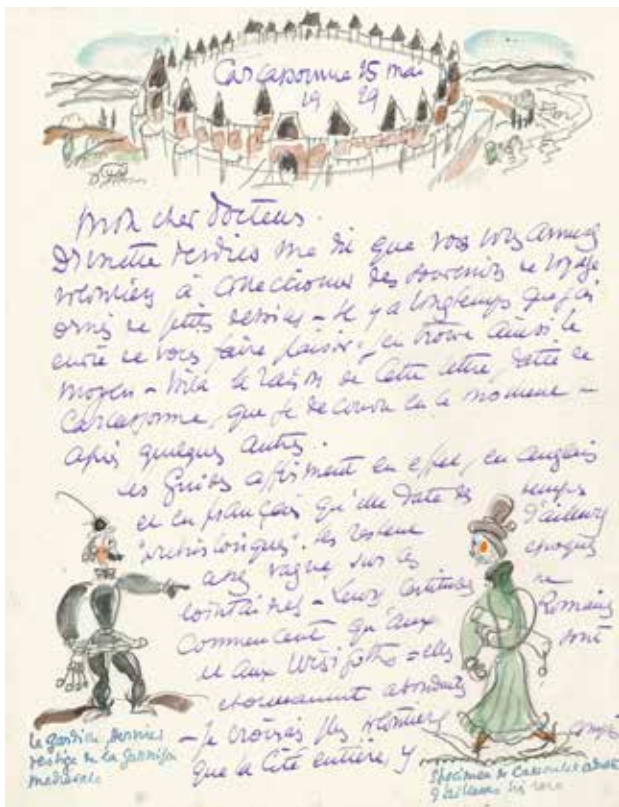 Carcassonne 25 mai
1929
Mon cher Docteur.
me dit que vous vous amusez
volontiers à collectionner des souvenirs de voyage
ornés de petits dessins – Il y a longtemps que j'ai
envie de vous faire plaisir. j'en trouve ainsi le
moyen – Voilà la raison de cette lettre, datée de
Carcassonne, que je découvre en ce moment –
après quelques autres.
Les Guides affirment en effet, en anglais
et en français qu'elle date des temps
"préhistoriques". Ils restent d'ailleurs
assez vagues sur ces époques
lointaines – Leurs certitudes ne
commencent qu'aux Romains
et aux Wisigoths – elles sont
énormément
– Je croirais plus volontiers
que la Cité entière, y
Le gardien dernier
vestige de la garnison
médiévale
Spécimen de
d'ailleurs très rare